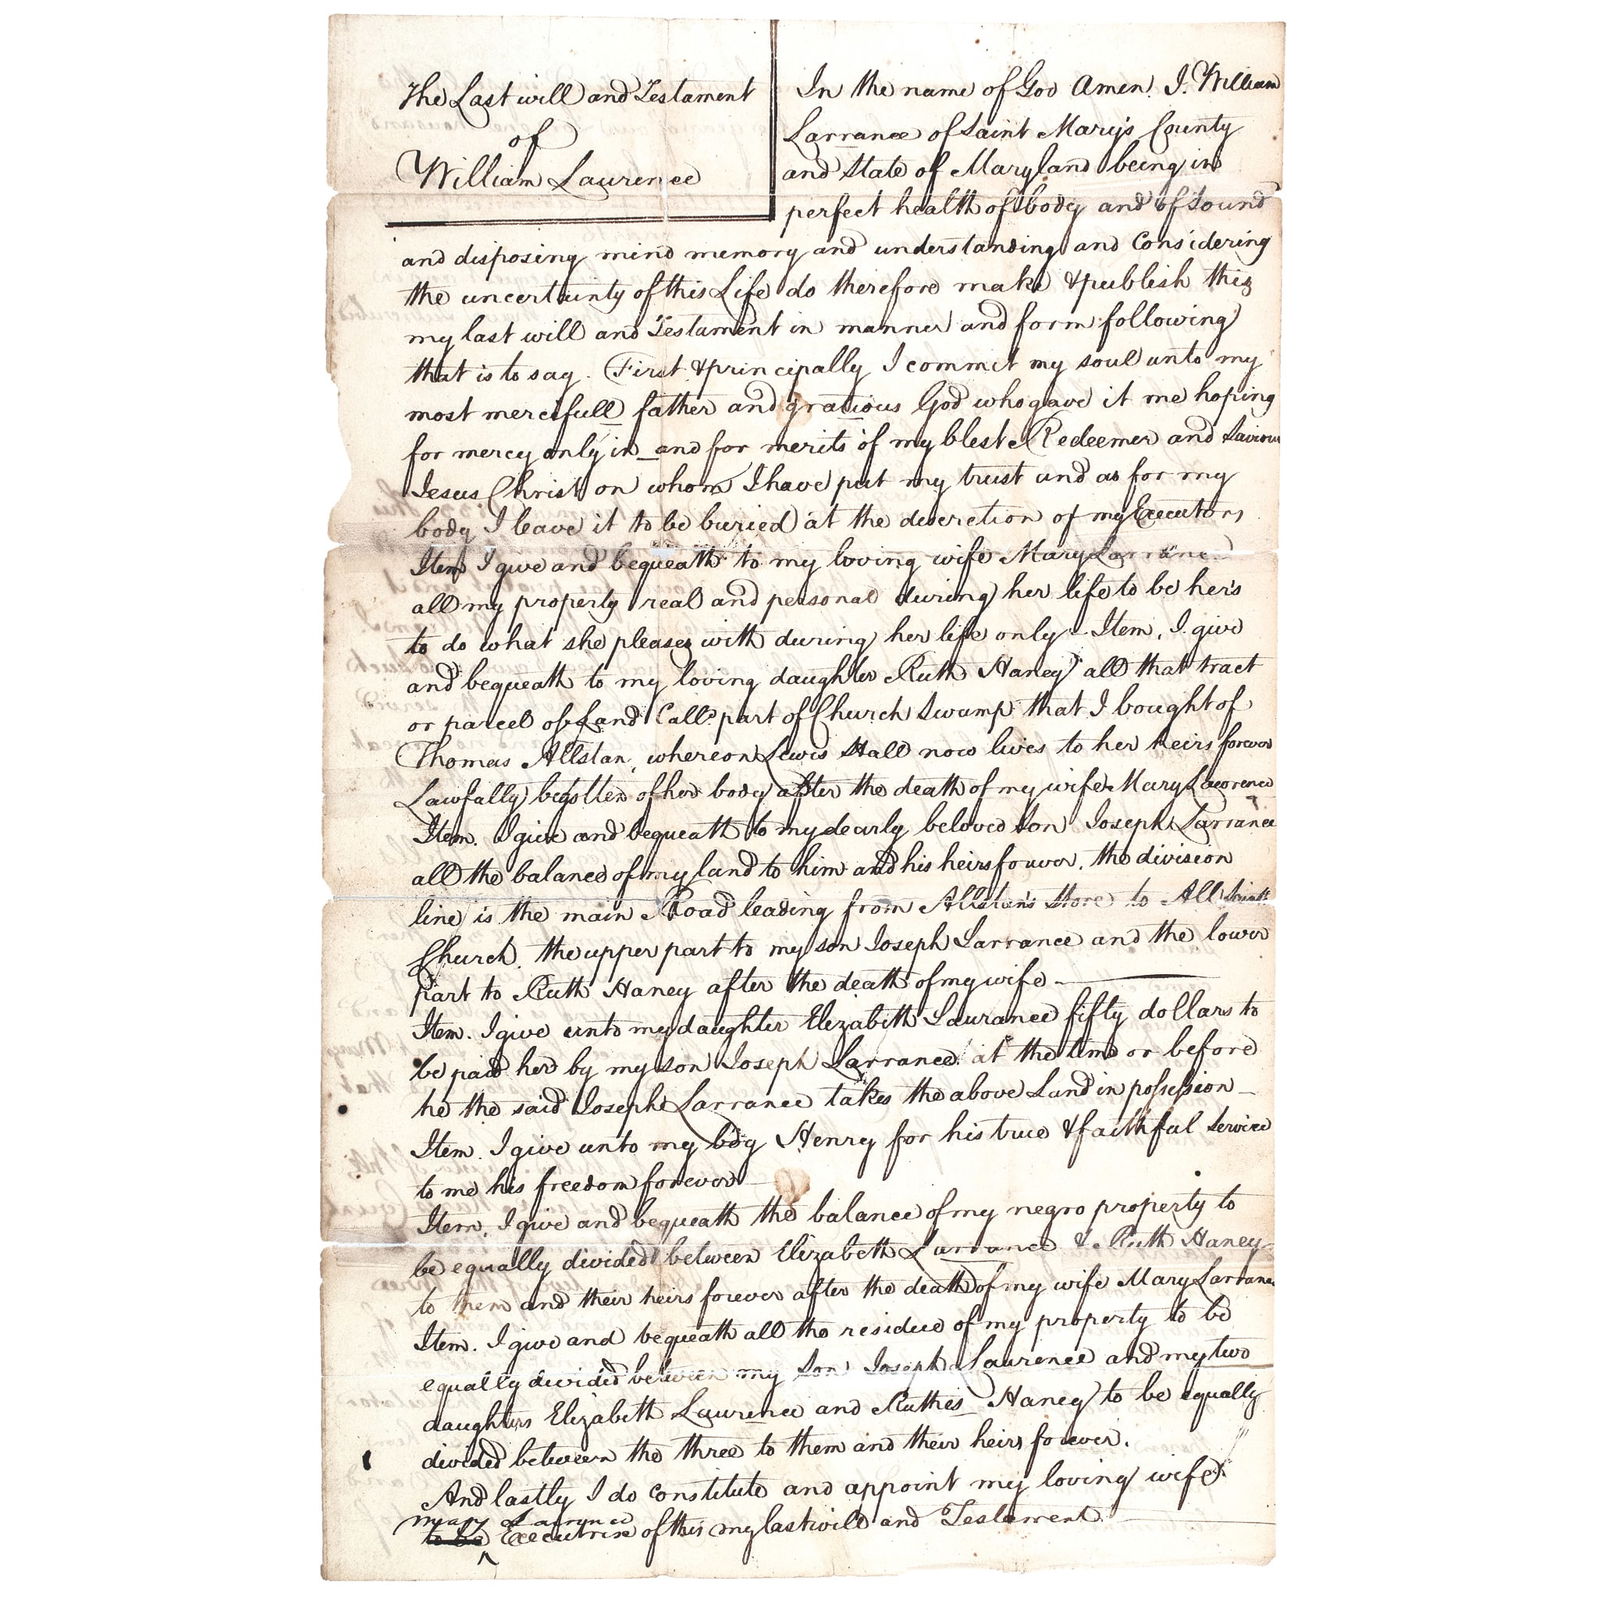 The Last will and Testament
of
William Laurence
In the name of God Amen. I. William
Larrance of Saint Mary's County
and State of Maryland being in
perfect health of body and of Sound
and disposing mind memory and understanding and Considering
the uncertainty of this Life do therefore make & publish this
my last will and Testament in manner and form following
that is to say. First & principally I commit my soul unto my
most mercifull father and gratious God who gave it me hoping
for mercy only in and for merits of my blest Redeemer and Saviour
Jesus Christ on whom I have put my trust and as for my
body I leave it to be buried at the descretion of my Executors
Item I give and bequeath to my loving wife Mary Larrance
all my property real and personal during her life to be her's
to do what she pleases with during her life only - Item. I give
and bequeath to my loving daughter Ruth Haney all that tract
or parcel of Land Call.d part of Church Swamp that I bought of
Thomas Allstan, whereon Lewis Hall now lives to her heirs forever
Lawfally begotten of her body after the death of my wife Mary Laurence
Item. I give and bequeath to my dearly beloved Son Joseph Larrance
all the balance of my land to him and his heirs forever. the division
line is the main Road leading from Allstan's Store to All Saints
Church. the upper part to my son Joseph Larrance and the lower
part to Ruth Haney after the death of my wife -
Item. I give unto my daughter Elizabeth Laurance fifty dollars to
be paid her by my son Joseph Larrance at the time or before
he the said Joseph Larrance takes the above Land in possession -
Item. I give unto my boy Henry for his true & faithful Service
to me his freedom forever -
Item. I give and bequeath the balance of my negro property to
be equally divided between Elizabeth Larrance & Ruth Haney
to them and their heirs forever after the death of my wife Mary Larrance
Item. I give and bequeath all the residue of my property to be
equally divided between my Son Joseph Laurence and my two
daughters Elizabeth Laurence and Ruthie Haney to be equally
divided between the three to them and their heirs forever.
And lastly I do constitute and appoint my loving wife
Mary Larrance
to be Executrix of this my last will and Testament.